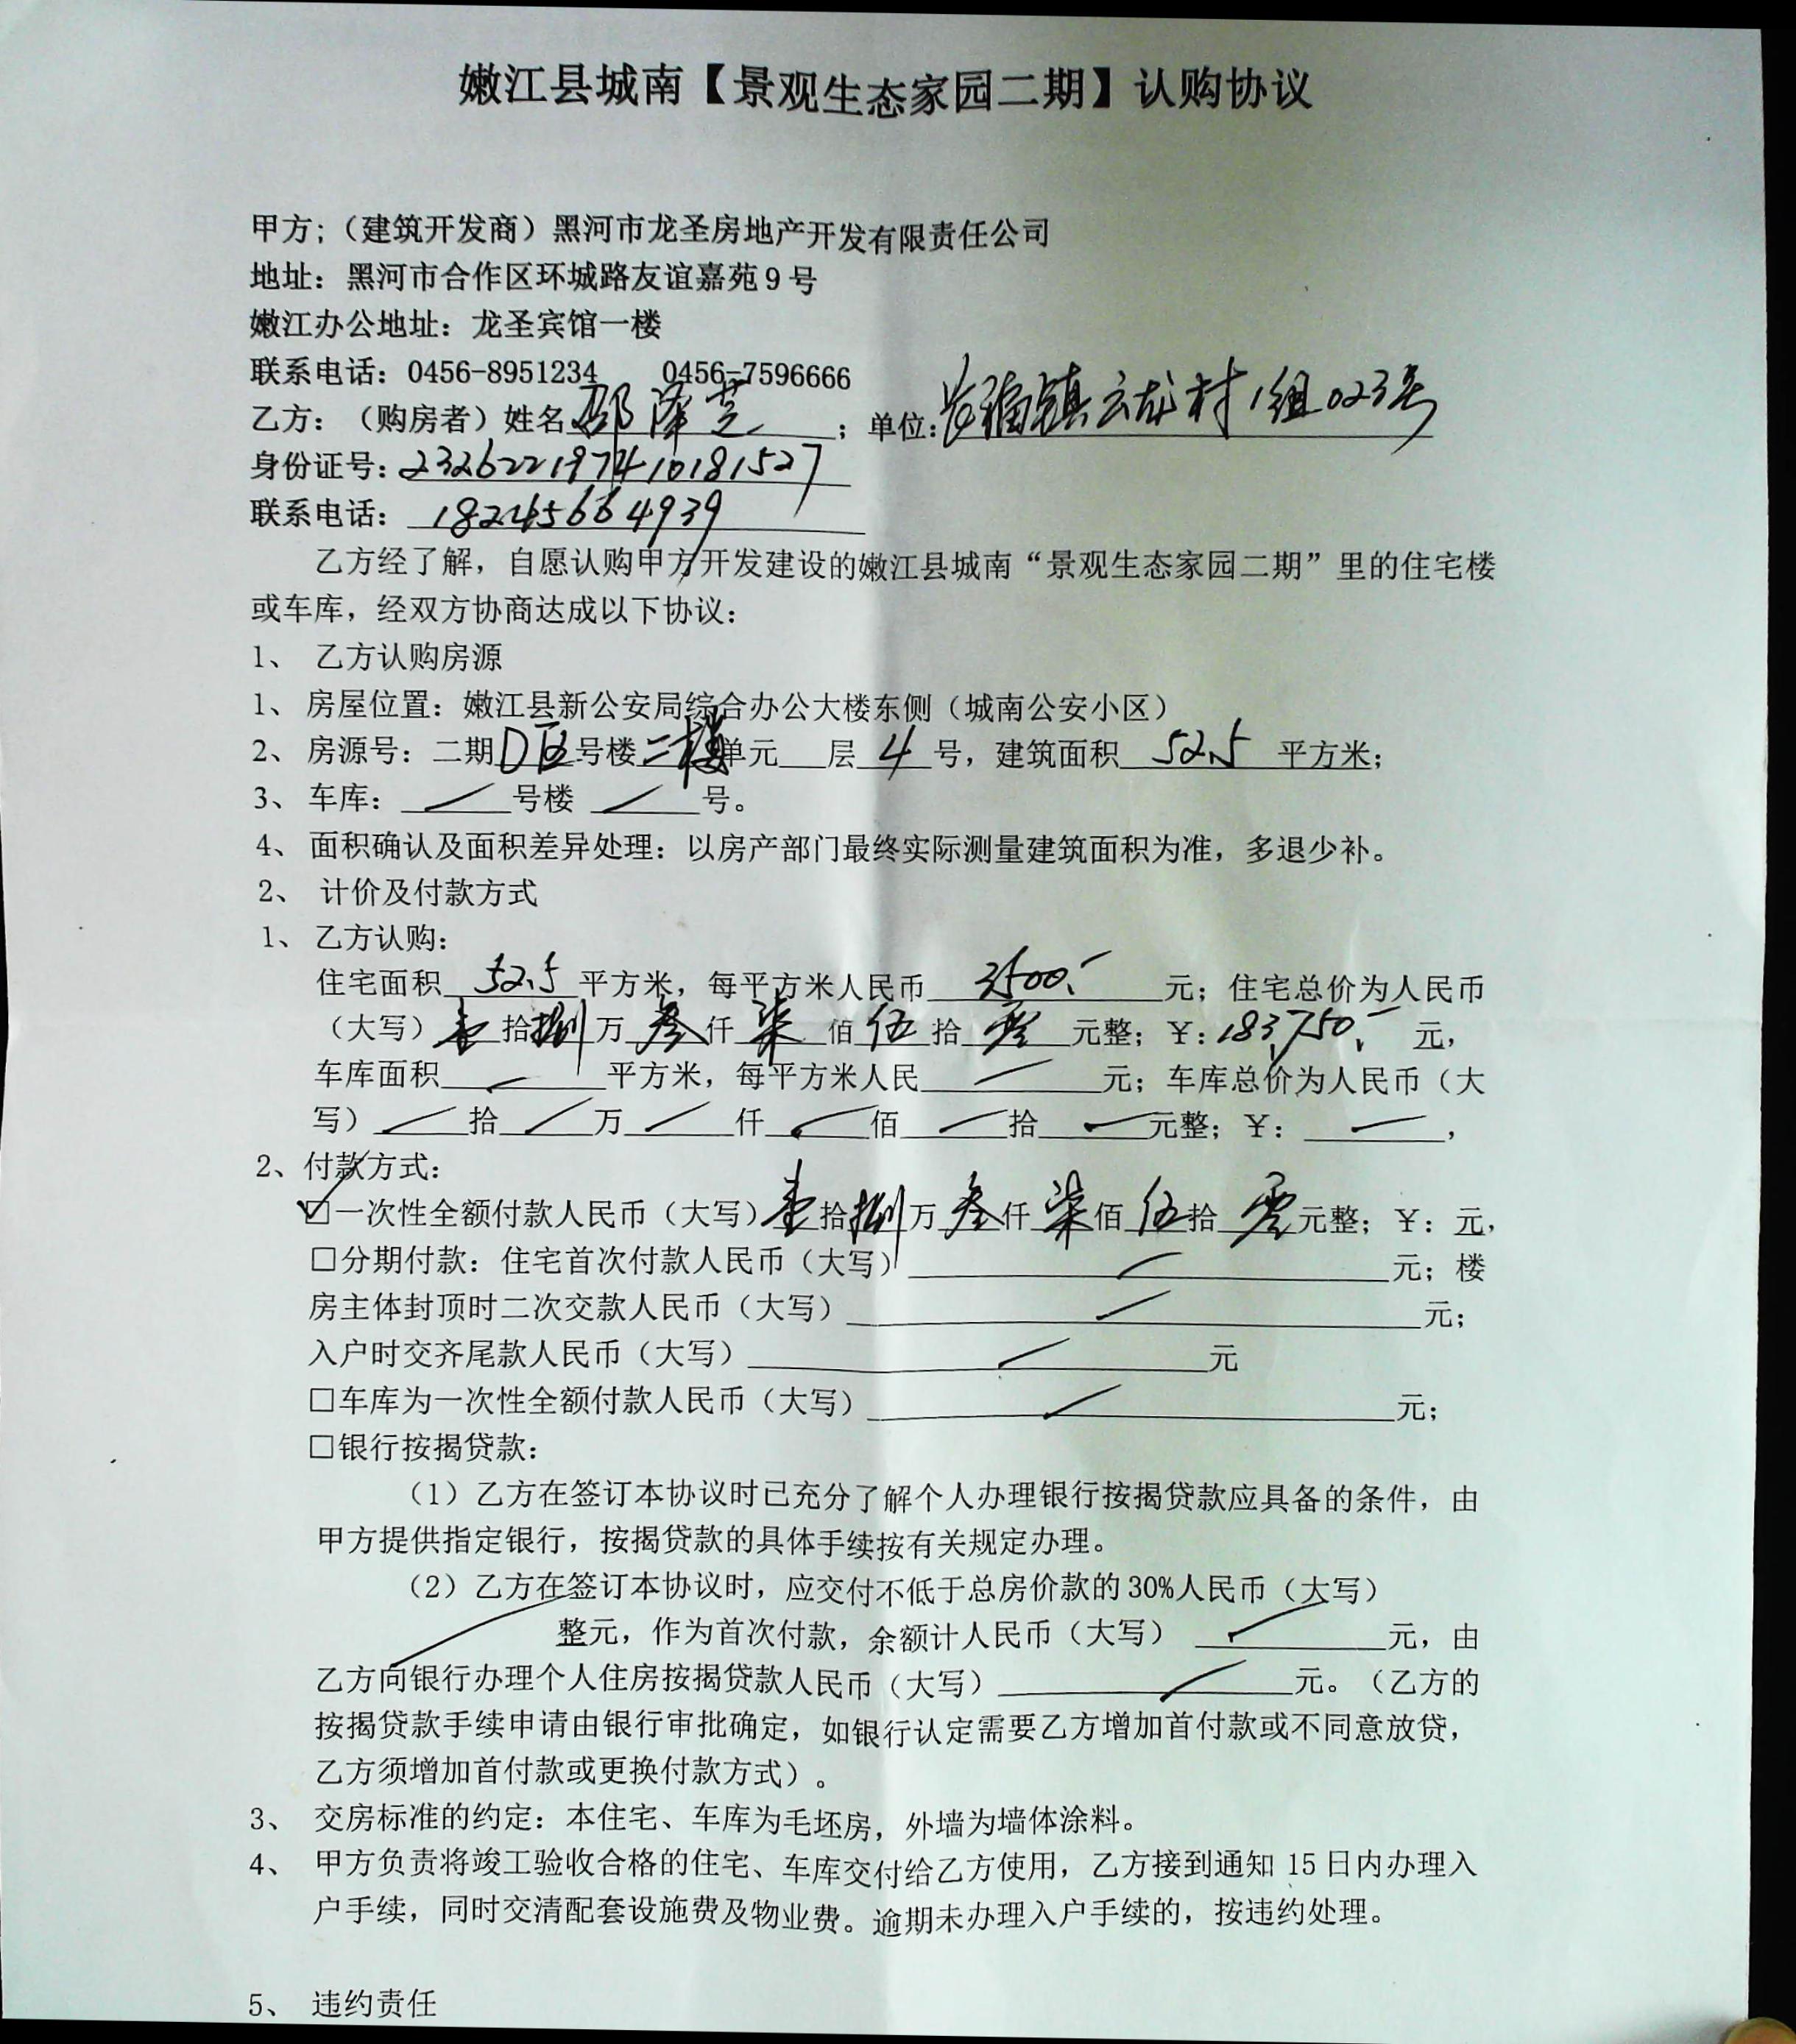 嫩江县城南【景观生态家园二期】认购协议
甲方;（建筑开发商）黑河市龙圣房地产开发有限责任公司
地址：黑河市合作区环城路友谊嘉苑9号
嫩江办公地址：龙圣宾馆一楼
联系电话：0456-8951234 0456-7596666
乙方：（购房者）姓名 邵泽芝 ；单位: 镇云龙村1组023号
身份证号: 232622197410181527
联系电话: 18245664939
乙方经了解，自愿认购甲方开发建设的嫩江县城南“景观生态家园二期”里的住宅楼
或车库，经双方协商达成以下协议：
1、 乙方认购房源
1、房屋位置：嫩江县新公安局综合办公大楼东侧（城南公安小区）
2、房源号：二期D区号楼二楼单元___层 4 号，建筑面积 52.5 平方米；
3、车库：／号楼 ／号。
4、面积确认及面积差异处理：以房产部门最终实际测量建筑面积为准，多退少补。
2、 计价及付款方式
1、乙方认购：
住宅面积 52.5 平方米，每平方米人民币 3500.- 元；住宅总价为人民币
（大写）壹拾捌万叁仟柒佰伍拾零元整；￥:183,750.- 元，
车库面积／平方米，每平方米人民／元；车库总价为人民币（大
写）／拾／万／仟／佰／拾／元整；￥：／，
2、付款方式：
☑一次性全额付款人民币（大写）壹拾捌万叁仟柒佰伍拾零元整；￥：元，
□分期付款：住宅首次付款人民币（大写）／元；楼
房主体封顶时二次交款人民币（大写）／元；
入户时交齐尾款人民币（大写）／元
□车库为一次性全额付款人民币（大写）／元；
□银行按揭贷款：
（1）乙方在签订本协议时已充分了解个人办理银行按揭贷款应具备的条件，由
甲方提供指定银行，按揭贷款的具体手续按有关规定办理。
（2）乙方在签订本协议时，应交付不低于总房价款的30%人民币（大写）
／整元，作为首次付款，余额计人民币（大写）／元，由
乙方向银行办理个人住房按揭贷款人民币（大写）／元。（乙方的
按揭贷款手续申请由银行审批确定，如银行认定需要乙方增加首付款或不同意放贷，
乙方须增加首付款或更换付款方式）。
3、 交房标准的约定：本住宅、车库为毛坯房，外墙为墙体涂料。
4、 甲方负责将竣工验收合格的住宅、车库交付给乙方使用，乙方接到通知15日内办理入
户手续，同时交清配套设施费及物业费。逾期未办理入户手续的，按违约处理。
5、 违约责任